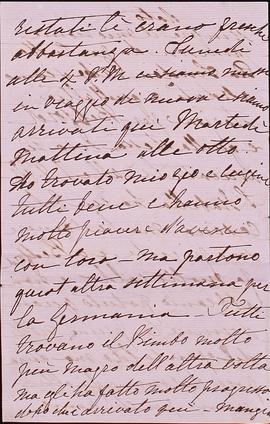 restati le erano fresche
abbastanza. Lunedi
alle 4 P.M. ci siamo messi
in viaggio di nuovo e siamo
arrivati quì Martedì
Mattina alle otto
Ho trovato mio zio e
tutti bene e hanno
molto piacere d'averci
con loro – ma partono
quest'altra settimana per
la Germania. Tutti
trovano il Bimbo molto
più magro dell'altra volta
ma egli ha fatto molto progresso
dopo che è arrivato quì – mangia